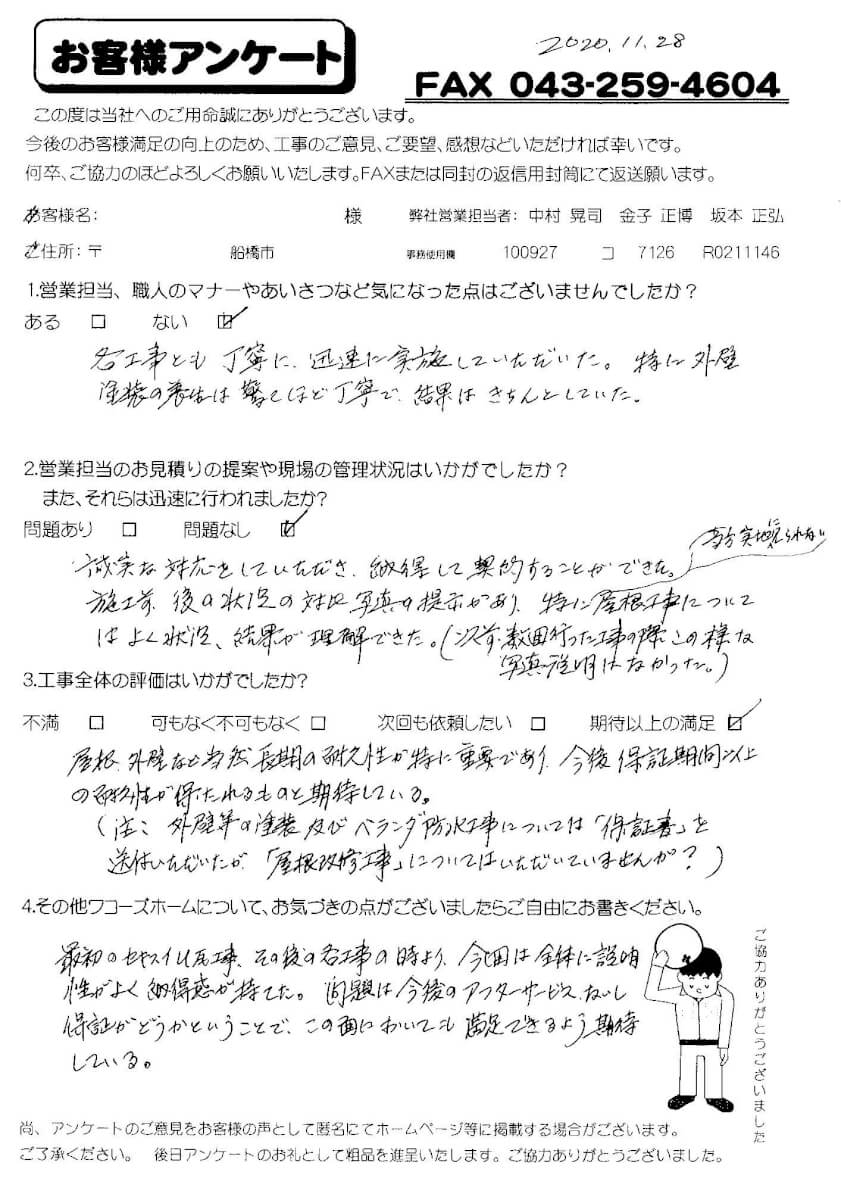 お客様アンケート
2020.11.28
FAX 043-259-4604
この度は当社へのご用命誠にありがとうございます。
今後のお客様満足の向上のため、工事のご意見、ご要望、感想などいただければ幸いです。
何卒、ご協力のほどよろしくお願いいたします。FAXまたは同封の返信用封筒にて返送願います。
お客様名: 様 弊社営業担当者: 中村 晃司 金子 正博 坂本 正弘
ご住所: 〒 船橋市 事務使用欄 100927 コ 7126 R0211146
1.営業担当、職人のマナーやあいさつなど気になった点はございませんでしたか?
ある □ ない ☑
各工事とも丁寧に、迅速に実施していただいた。特に外壁
塗装の養生は驚くほど丁寧で、結果はきちんとしていた。
2.営業担当のお見積りの提案や現場の管理状況はいかがでしたか?
また、それらは迅速に行われましたか?
問題あり □ 問題なし ☑
誠実な対応をしていただき、納得して契約することができた。
実地に見られない
施工前、後の状況の対比写真の提示があり、特に屋根工事について
はよく状況、結果が理解できた。(以前、数回行った工事の際この様な
写真説明はなかった。)
3.工事全体の評価はいかがでしたか?
不満 □ 可もなく不可もなく □ 次回も依頼したい □ 期待以上の満足 ☑
屋根、外壁など当然長期の耐久性が特に重要であり、今後保証期間以上
の耐久性が保たれるものと期待している。
(注: 外壁等の塗装及びベランダ防水工事については「保証書」を
送付いただいたが、「屋根改修工事」についてはいただいていませんが?)
4.その他ワコーズホームについて、お気づきの点がございましたらご自由にお書きください。
最初のセキスイ瓦工事、その後の各工事の時より、今回は全体に説明
性がよく納得感が持てた。問題は今後のアフターサービスないし
保証がどうかということで、この面においても満足できるよう期待
している。
ご協力ありがとうございました
尚、アンケートのご意見をお客様の声として匿名にてホームページ等に掲載する場合がございます。
ご了承ください。 後日アンケートのお礼として粗品を進呈いたします。ご協力ありがとうございました。